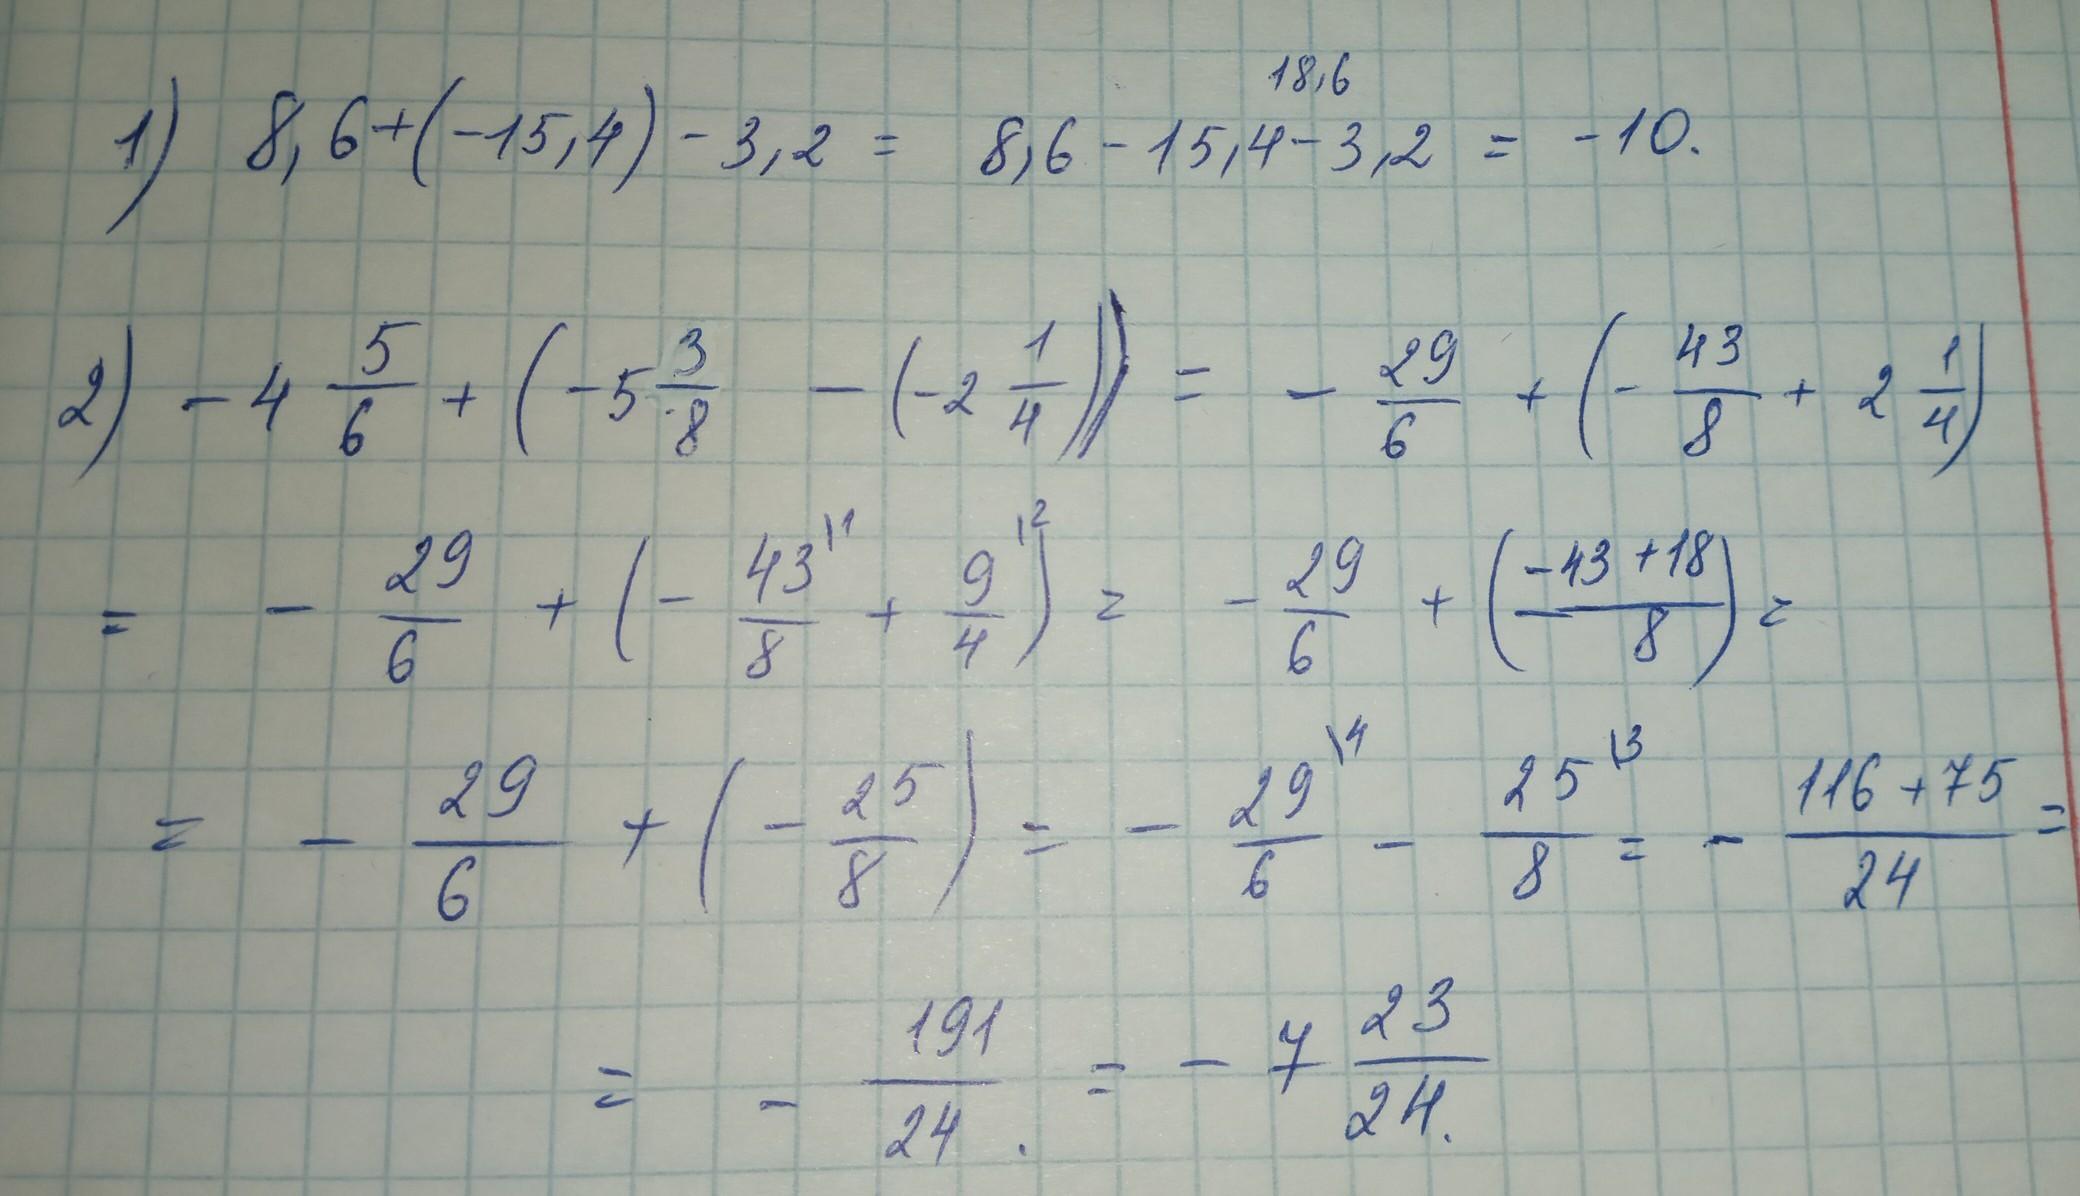 18,6
1) 8,6+(-15,4)-3,2 = 8,6-15,4-3,2 = -10.
2) -4 5/6 + (-5 3/8 - (-2 1/4)) = - 29/6 + (- 43/8 + 2 1/4)
= - 29/6 + (- 43\1/8 + 9\2/4) = - 29/6 + (-43+18/8) =
= - 29/6 + (- 25/8) = - 29\4/6 - 25\3/8 = - 116+75/24 =
= - 191/24. = - 7 23/24.